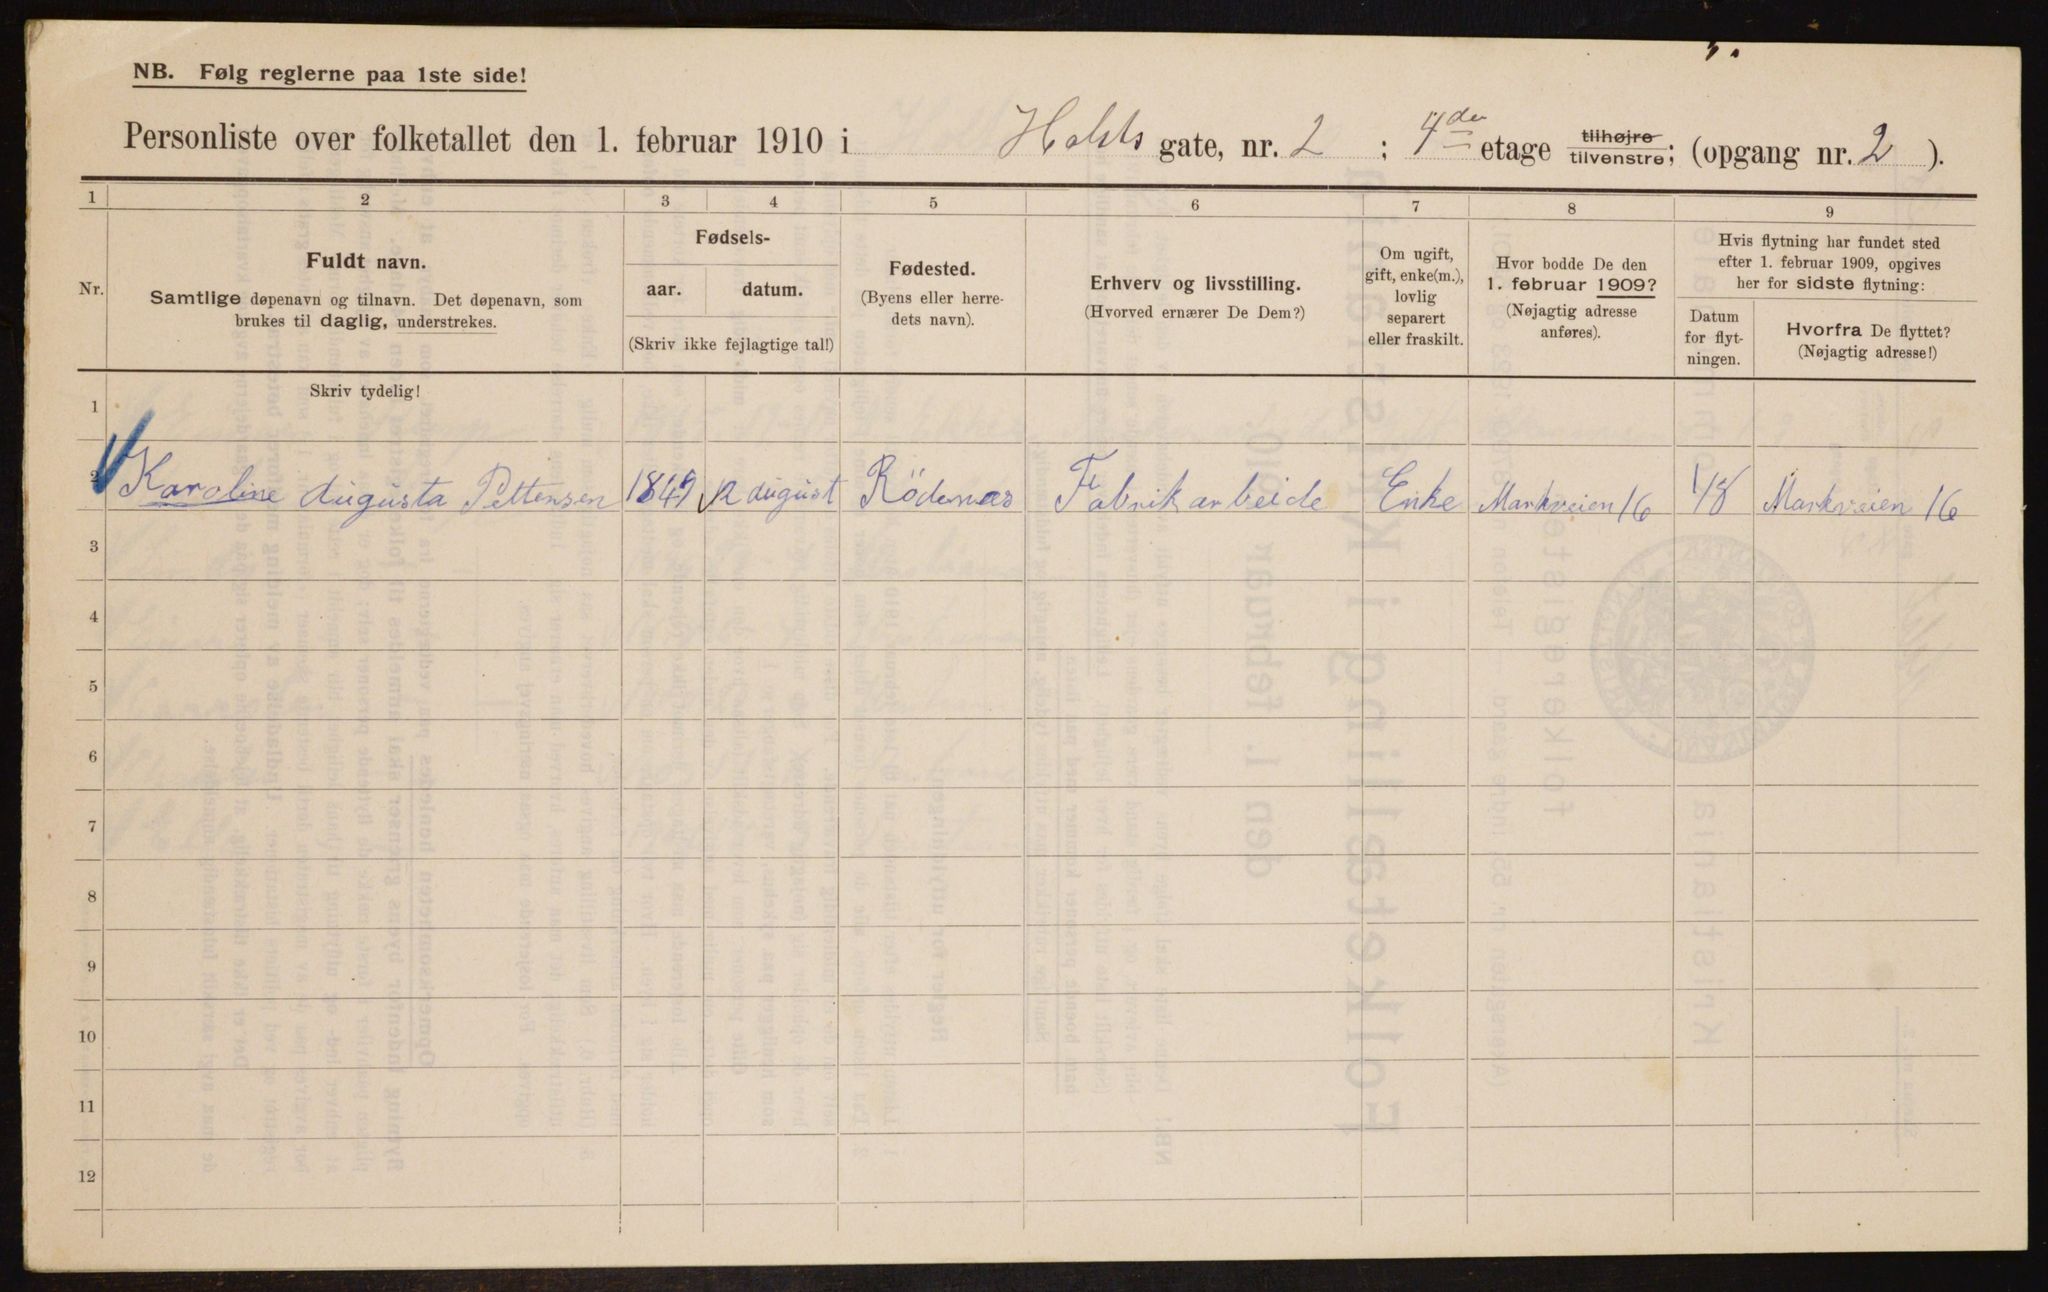 NB. Følg reglerne paa 1ste side!
Personliste over folketallet den 1. februar 1910 i Holsts gate, nr. 2 ; 4de etage tilhøjre tilvenstre; (opgang nr. 2 ).
1 2 3 4 5 6 7 8 9
Nr.
Fuldt navn.
Samtlige døpenavn og tilnavn. Det døpenavn, som
brukes til daglig, understrekes.
Fødsels-
aar. datum.
(Skriv ikke fejlagtige tal!)
Fødested.
(Byens eller herre-
dets navn).
Erhverv og livsstilling.
(Hvorved ernærer De Dem?)
Om ugift,
gift, enke(m.),
lovlig
separert
eller fraskilt.
Hvor bodde De den
1. februar 1909?
(Nøjagtig adresse
anføres).
Hvis flytning har fundet sted
efter 1. februar 1909, opgives
her for sidste flytning:
Datum
for flyt-
ningen.
Hvorfra De flyttet?
(Nøjagtig adresse!)
Skriv tydelig!
1
2 Karoline Augusta Pettensen 1849 12 August Rödenæs Fabrik arbeide Enke Markveien 16 1/8 Markveien 16
3
4
5
6
7
8
9
10
11
12